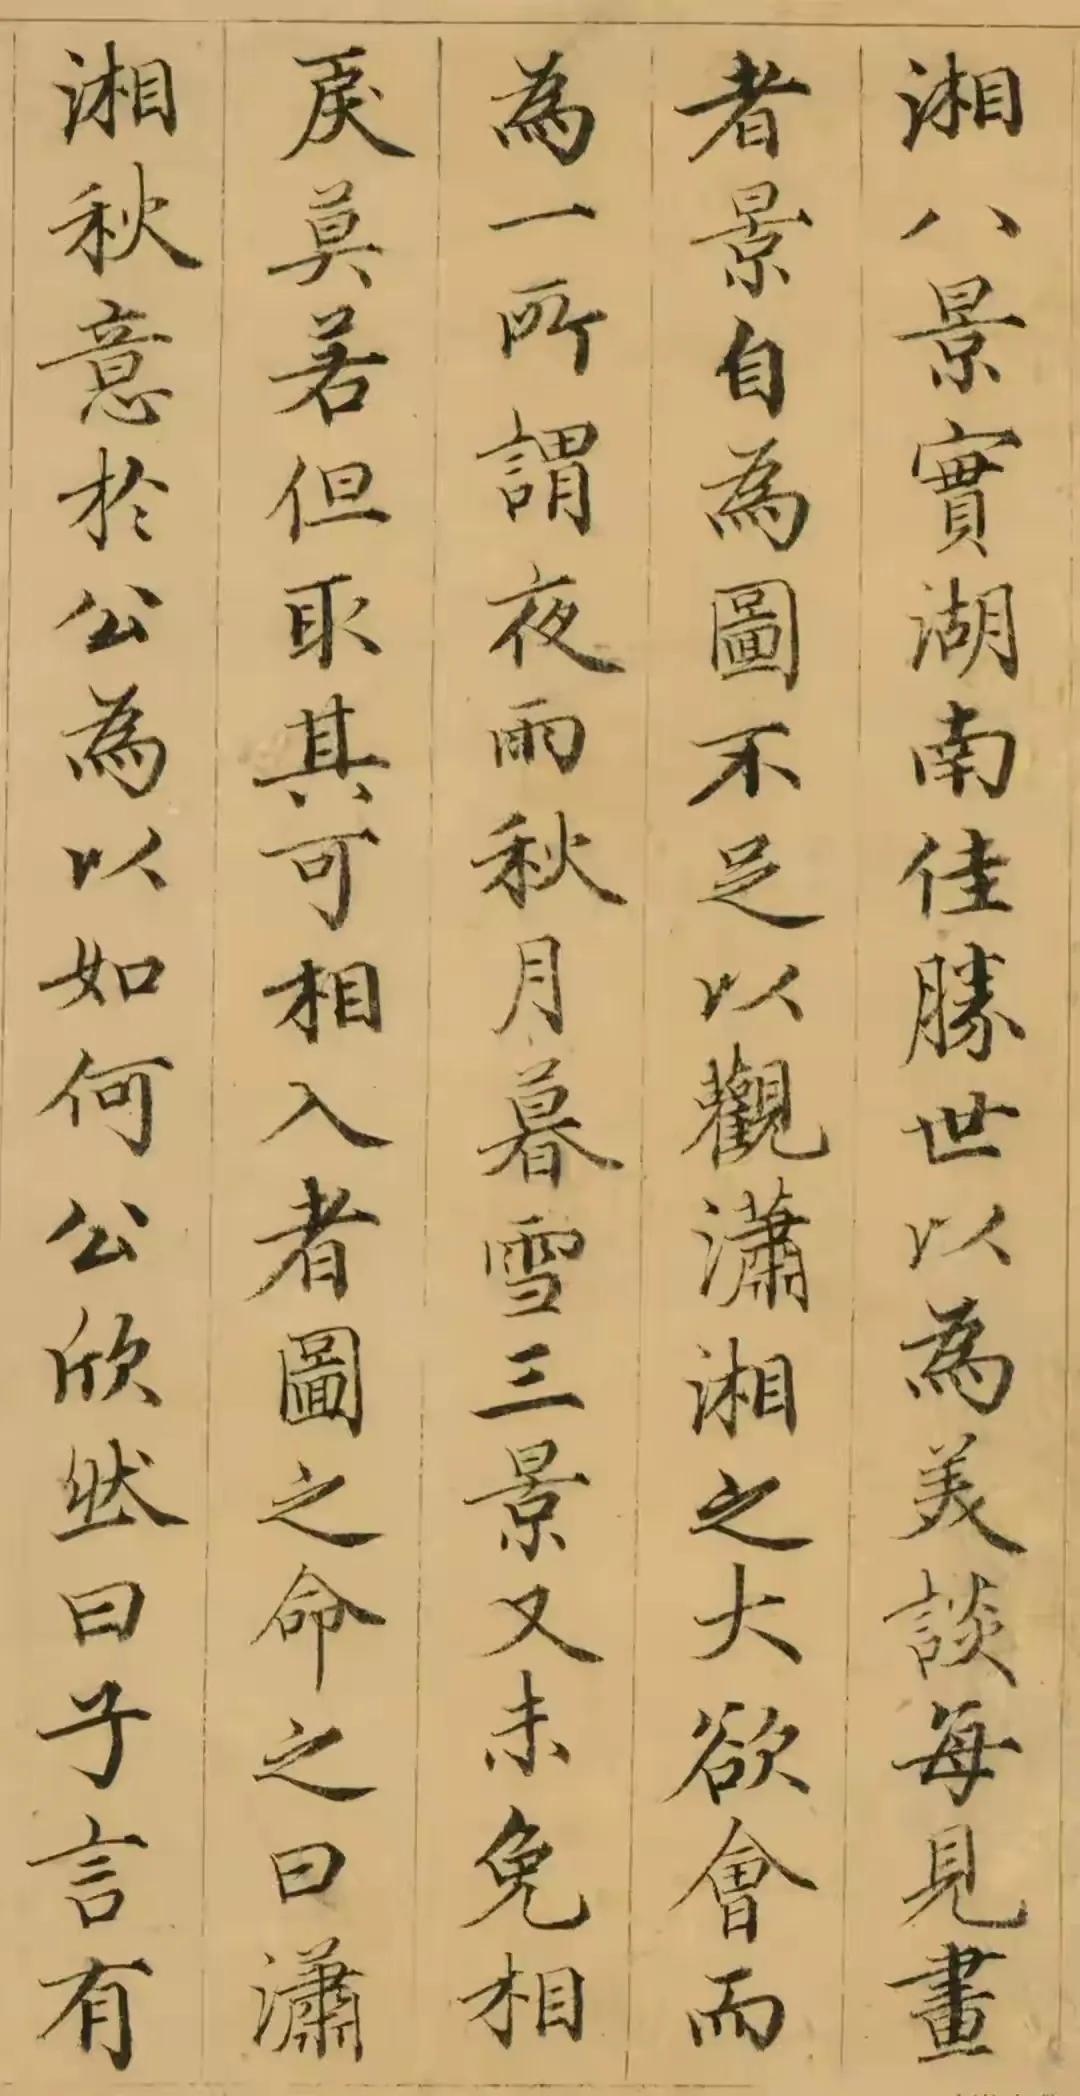 湘八景實湖南佳勝世以為美談每見畫
者景自為圖不足以觀瀟湘之大欲會而
為一所謂夜雨秋月暮雪三景又未免相
戾莫若但取其可相入者圖之命之曰瀟
湘秋意於公為以如何公欣然曰子言有